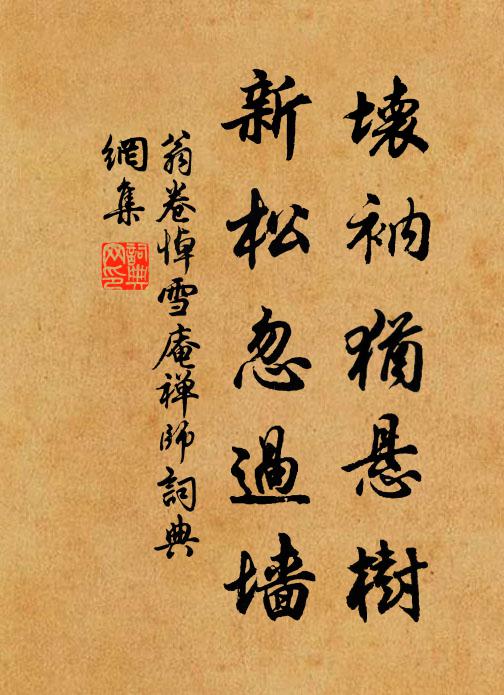 壞衲猶懸樹
新松忽過墻
翁卷悼雪庵禅师詞典
網集
詞典网印